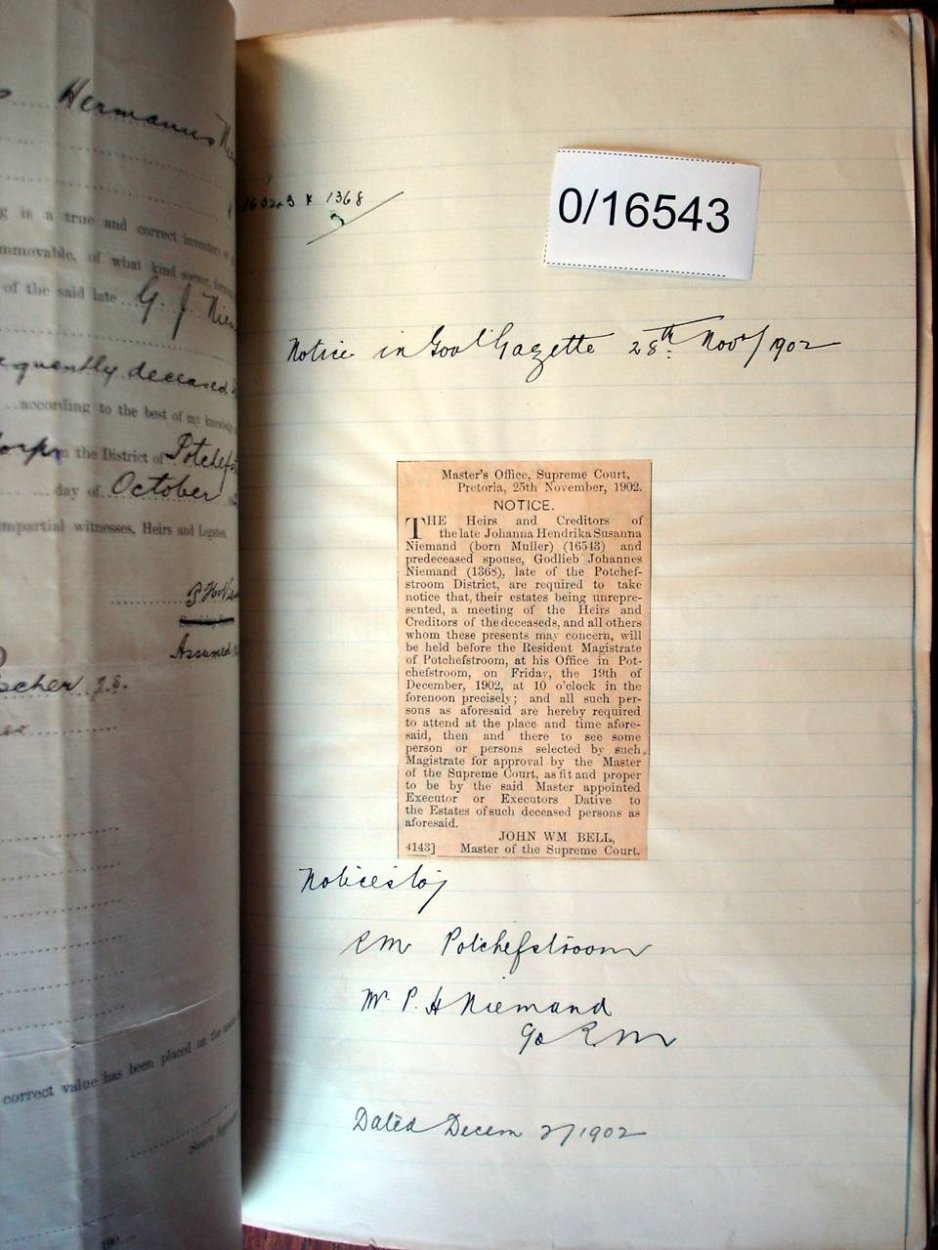 Hermanus
g is a true and correct
mmovable, of what kind
of the said late G. J.
equently deceased
according to the best of my
the District of
day of October
mpartial witnesses, Heirs and
Assumed
scher
correct value has been placed on the
1368
0/16543
Notice in Gov Gazette 28th Nov/1902
Master's Office, Supreme Court,
Pretoria, 25th November, 1902.
NOTICE.
THE Heirs and Creditors of
the late Johanna Hendrika Susanna
Niemand (born Muller) (16543) and
predeceased spouse, Godlieb Johannes
Niemand (1368), late of the Potchef-
stroom District, are required to take
notice that, their estates being unrepre-
sented, a meeting of the Heirs and
Creditors of the deceaseds, and all others
whom these presents may concern, will
be held before the Resident Magistrate
of Potchefstroom, at his Office in Pot-
chefstroom, on Friday, the 19th of
December, 1902, at 10 o'clock in the
forenoon precisely; and all such per-
sons as aforesaid are hereby required
to attend at the place and time afore-
said, then and there to see some
person or persons selected by such
Magistrate for approval by the Master
of the Supreme Court, as fit and proper
to be by the said Master appointed
Executor or Executors Dative to
the Estates of such deceased persons as
aforesaid.
JOHN WM BELL,
4143] Master of the Supreme Court.
Notices to
RM Potchefstroom
Mr. P. H Niemand
c/o R. M
Dated Decem 2/1902